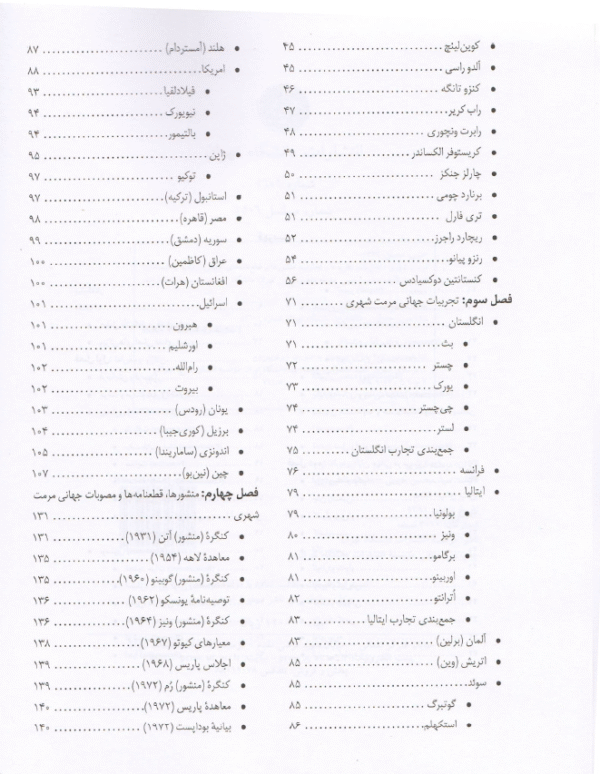 • کوین‌لینچ ........................ ۴۵
• آلدو راسی ........................ ۴۵
• کنزو تانگه ........................ ۴۶
• راب کریر ........................ ۴۷
• رابرت ونچوری ........................ ۴۸
• کریستوفر الکساندر ........................ ۴۹
• چارلز جنکز ........................ ۵۰
• برنارد چومی ........................ ۵۱
• تری فارل ........................ ۵۱
• ریچارد راجرز ........................ ۵۲
• رنزو پیانو ........................ ۵۴
• کنستانتین دوکسیادس ........................ ۵۶
فصل سوم: تجربیات جهانی مرمت شهری .......... ۷۱
• انگلستان ........................ ۷۱
• بث ........................ ۷۱
• چستر ........................ ۷۲
• یورک ........................ ۷۳
• چی‌چستر ........................ ۷۴
• لستر ........................ ۷۴
• جمع‌بندی تجارب انگلستان ............ ۷۵
• فرانسه ........................ ۷۶
• ایتالیا ........................ ۷۹
• بولونیا ........................ ۷۹
• ونیز ........................ ۸۰
• برگامو ........................ ۸۱
• اوربینو ........................ ۸۱
• اُترانتو ........................ ۸۲
• جمع‌بندی تجارب ایتالیا ............ ۸۳
• آلمان (برلین) ........................ ۸۳
• اتریش (وین) ........................ ۸۵
• سوئد ........................ ۸۵
• گوتبرگ ........................ ۸۵
• استکهلم ........................ ۸۶
• هلند (آمستردام) ........................ ۸۷
• امریکا ........................ ۸۸
• فیلادلفیا ........................ ۹۳
• نیویورک ........................ ۹۴
• بالتیمور ........................ ۹۴
• ژاپن ........................ ۹۵
• توکیو ........................ ۹۷
• استانبول (ترکیه) ........................ ۹۷
• مصر (قاهره) ........................ ۹۸
• سوریه (دمشق) ........................ ۹۹
• عراق (کاظمین) ........................ ۱۰۰
• افغانستان (هرات) ........................ ۱۰۰
• اسرائیل ........................ ۱۰۱
• هبرون ........................ ۱۰۱
• اورشلیم ........................ ۱۰۱
• رام‌الله ........................ ۱۰۲
• بیروت ........................ ۱۰۲
• یونان (رودس) ........................ ۱۰۳
• برزیل (کوری‌جیبا) ........................ ۱۰۴
• اندونزی (ساماریندا) ........................ ۱۰۵
• چین (نین‌بو) ........................ ۱۰۷
فصل چهارم: منشورها، قطعنامه‌ها و مصوبات جهانی مرمت
شهری ........................ ۱۳۱
• کنگرهٔ (منشور) آتن (۱۹۳۱) ............ ۱۳۱
• معاهدهٔ لاهه (۱۹۵۴) ............ ۱۳۵
• کنگرهٔ (منشور) گوبینو (۱۹۶۰) ............ ۱۳۵
• توصیه‌نامهٔ یونسکو (۱۹۶۲) ............ ۱۳۶
• کنگرهٔ (منشور) ونیز (۱۹۶۴) ............ ۱۳۶
• معیارهای کیوتو (۱۹۶۷) ............ ۱۳۸
• اجلاس پاریس (۱۹۶۸) ............ ۱۳۹
• کنگرهٔ (منشور) رُم (۱۹۷۲) ............ ۱۳۹
• معاهدهٔ پاریس (۱۹۷۲) ............ ۱۴۰
• بیانیهٔ بوداپست (۱۹۷۲) ............ ۱۴۰